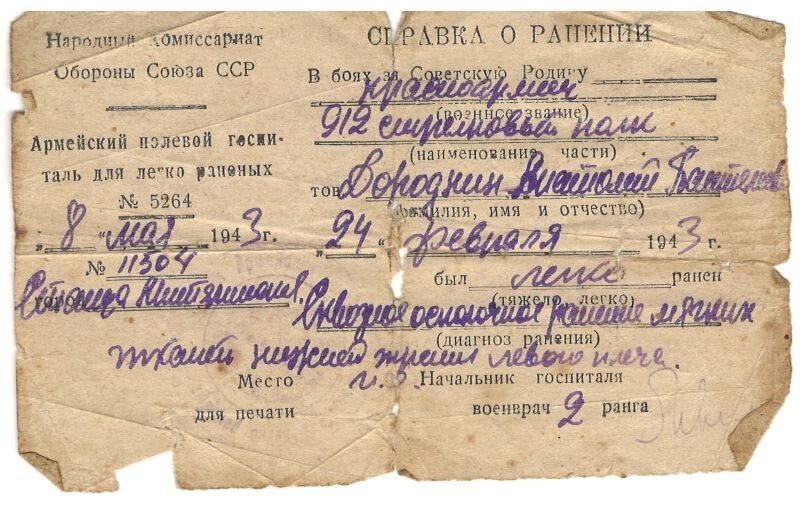 Народный Комиссариат
Обороны Союза ССР
Армейский полевой госпи-
таль для легко раненых
№ 5264
„ 8 “ мая 1943г.
№ 11304
город Станица
СПРАВКА О РАНЕНИИ
В боях за Советскую Родину
красноармеец
(военное звание)
912 стрелковый полк
(наименование части)
тов Бороднин Анатолий
(фамилия, имя и отчество)
„ 24 “ февраля 1943 г.
был легко ранен
(тяжело, легко)
Сквозное осколочное ранение мягких
(диагноз ранения)
тканей нижней трети левого плеча.
Место
для печати
Начальник госпиталя
военврач 2 ранга